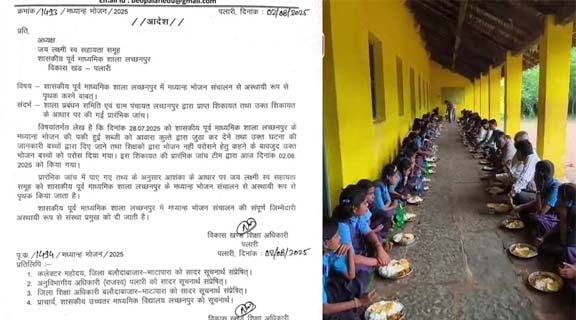 Email ID : beopalariedu@gmail.com
क्रमांक /1493/ मध्यान्ह भोजन /2025 पलारी, दिनांक : 02/08/2025
//आदेश//
प्रति,
अध्यक्ष
जय लक्ष्मी स्व सहायता समूह
शासकीय पूर्व माध्यमिक शाला लच्छनपुर
विकास खंड – पलारी
विषय – शासकीय पूर्व माध्यमिक शाला लच्छनपुर में मध्यान्ह भोजन संचालन से अस्थायी रूप से
पृथक करने बाबत्।
संदर्भ – शाला प्रबंधन समिति एवं ग्राम पंचायत लच्छनपुर द्वारा प्राप्त शिकायत तथा उक्त शिकायत
के आधार पर की गई प्रारंभिक जांच।
विषयांतर्गत लेख है कि दिनांक 28.07.2025 को शासकीय पूर्व माध्यमिक शाला लच्छनपुर के
मध्यान्ह भोजन की पकी हुई सब्जी को आवारा कुत्ते द्वारा जुठा कर देने तथा उक्त घटना की
जानकारी बच्चों द्वारा दिए जाने तथा शिक्षकों द्वारा भोजन नहीं परोसने हेतु कहने के बावजूद उक्त
भोजन बच्चों को परोस दिया गया। इस शिकायत की प्रारंभिक जांच टीम द्वारा आज दिनांक 02.08.
2025 को किया गया।
प्रारंभिक जांच में पाए गए तथ्य के अनुसार आशंका के आधार पर जय लक्ष्मी स्व सहायता
समूह को शासकीय पूर्व माध्यमिक शाला लच्छनपुर के मध्यान्ह भोजन संचालन से अस्थायी रूप से
पृथक किया जाता है।
शासकीय पूर्व माध्यमिक शाला लच्छनपुर में मध्यान्ह भोजन संचालन की संपूर्ण जिम्मेदारी
अस्थायी रूप से संस्था प्रमुख को दी जाती है।
विकास खण्ड शिक्षा अधिकारी
पलारी
पृ.क्र./1494 / मध्यान्ह भोजन /2025 पलारी, दिनांक : 02/08/2025
प्रतिलिपि :-
1. कलेक्टर महोदय, जिला बलौदाबाजार–भाटापारा को सादर सूचनार्थ संप्रेषित।
2. अनुविभागीय अधिकारी (राजस्व) पलारी को सादर सूचनार्थ संप्रेषित।
3. जिला शिक्षा अधिकारी बलौदाबाजार–भाटापारा को सादर सूचनार्थ संप्रेषित।
4. प्राचार्य, शासकीय उच्चतर माध्यमिक विद्यालय लच्छनपुर को सूचनार्थ।
विकास खण्ड शिक्षा अधिकारी